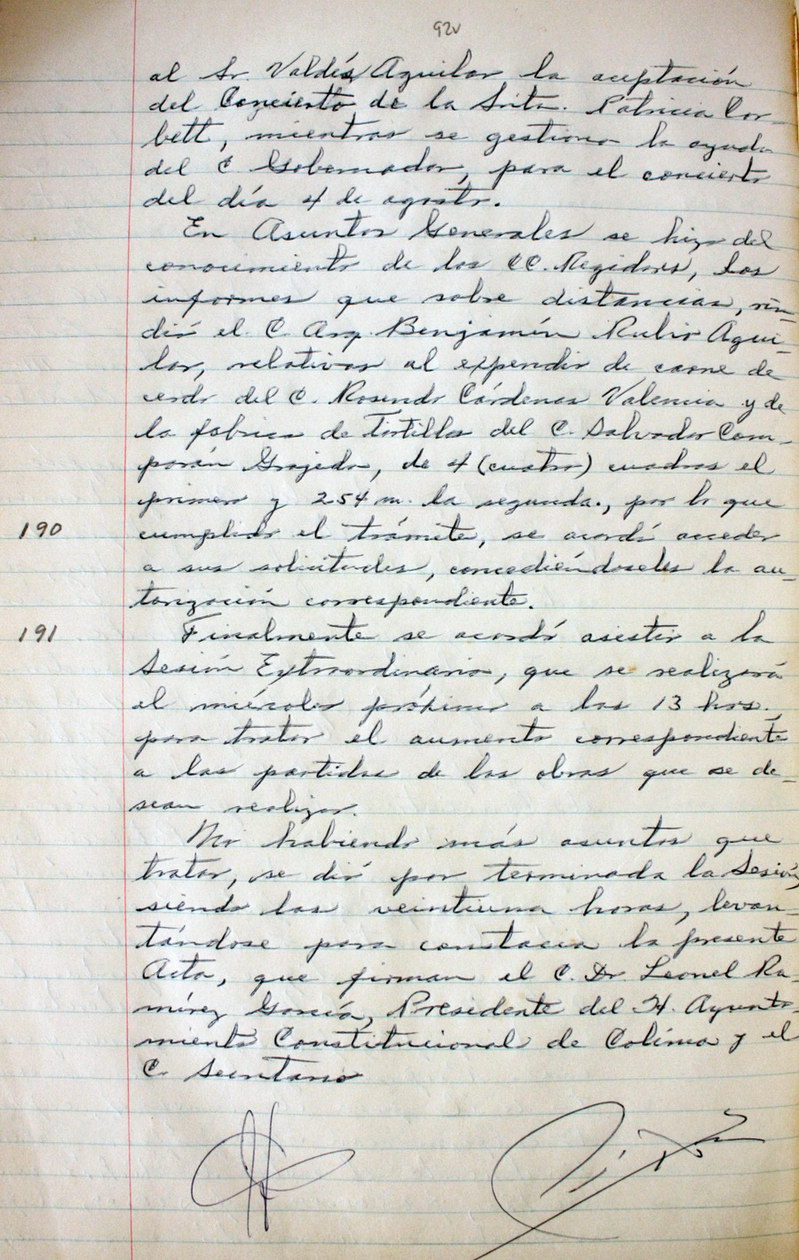 92v
al Sr. Valdés Aguilar, la aceptación
del Concierto de la Srita. Patricia Cor-
bett, mientras se gestiona la ayuda
del C Gobernador, para el concierto
del día 4 de agosto.
En Asuntos Generales se hizo del
conocimiento de los CC. Regidores, los
informes que sobre distancias, rin-
dió el C. Arq. Benjamín Rubio Agui-
lar, relativas al expendio de carne de
cerdo del C. Rosendo Cárdenas Valencia y de
la fabrica de Tortillas del C. Salvador Com-
parán Grajeda, de 4 (cuatro) cuadras el
primero y 254 m. la segunda., por lo que
190 cumplido el trámite, se acordó acceder
a sus solicitudes, concediéndoseles la au-
torización correspondiente.
191 Finalmente se acordó asistir a la
Sesión Extraordinaria, que se realizará
el miércoles próximo a las 13 hrs.,
para tratar el aumento correspondiente
a las partidas de las obras que se de-
sean realizar.
No habiendo más asuntos que
tratar, se dió por terminada la Sesión,
siendo las veintiuna horas, levan-
tándose para constacia la presente
Acta, que firman el C. Dr. Leonel Ra-
mírez García, Presidente del H. Ayunta-
miento Constitucional de Colima y el
C. Secretario